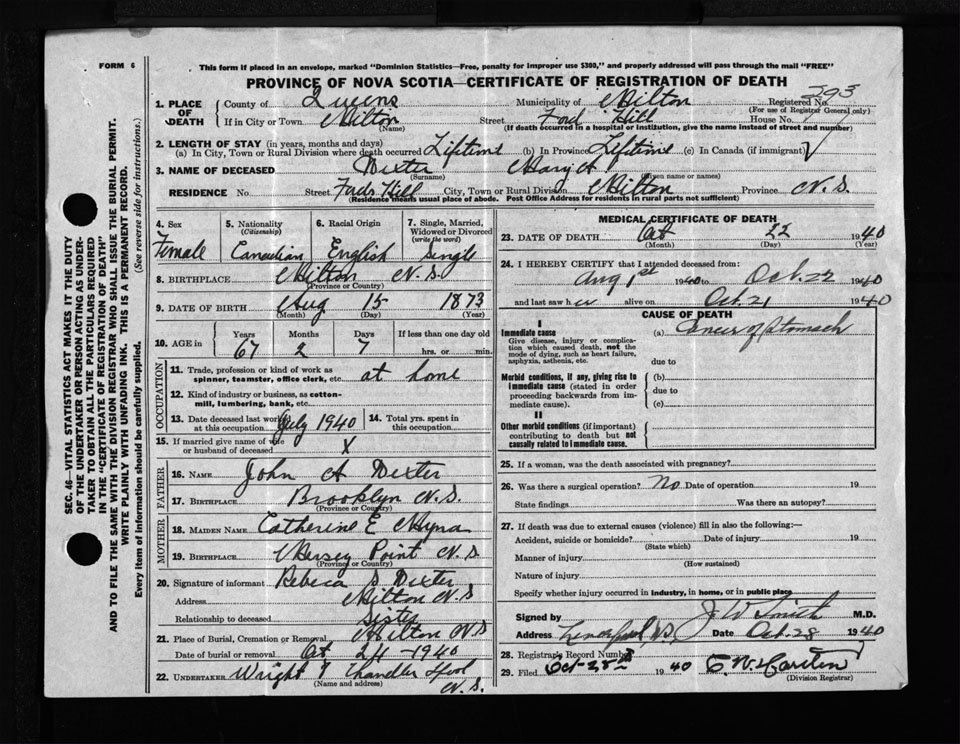 FORM 6
This form if placed in an envelope, marked "Dominion Statistics—Free, penalty for improper use $300," and properly addressed will pass through the mail "FREE"
PROVINCE OF NOVA SCOTIA—CERTIFICATE OF REGISTRATION OF DEATH
293
1. PLACE OF DEATH
County of Queens Municipality of Milton Registered No.
(For use of Registrar General only)
If in City or Town Milton Street Ford Hill House No.
(Name) (If death occurred in a hospital or institution, give the name instead of street and number)
2. LENGTH OF STAY (in years, months and days)
(a) In City, Town or Rural Division where death occurred Lifetime (b) In Province Lifetime (c) In Canada (if immigrant)
3. NAME OF DECEASED Dexter Mary A
(Surname) (Given name or names)
RESIDENCE No Street Fords Hill City, Town or Rural Division Milton Province N.S.
(Residence means usual place of abode. Post Office Address for residents in rural parts not sufficient)
4. Sex 5. Nationality (Citizenship) 6. Racial Origin 7. Single, Married, Widowed or Divorced (write the word)
Female Canadian English Single
8. BIRTHPLACE Milton N.S.
(Province or Country)
9. DATE OF BIRTH Aug 15 1873
(Month) (Day) (Year)
10. AGE in Years Months Days If less than one day old
67 2 7 hrs. or min.
OCCUPATION
11. Trade, profession or kind of work as spinner, teamster, office clerk, etc. at home
12. Kind of industry or business, as cotton-mill, lumbering, bank, etc.
13. Date deceased last worked at this occupation July 1940 14. Total yrs. spent in this occupation
15. If married give name of wife or husband of deceased X
FATHER
16. NAME John A Dexter
17. BIRTHPLACE Brooklyn N.S.
(Province or Country)
MOTHER
18. MAIDEN NAME Catherine E
19. BIRTHPLACE Mersey Point N.S.
(Province or Country)
20. Signature of informant Rebeca S Dexter
Address Milton N.S
Relationship to deceased Sister
21. Place of Burial, Cremation or Removal Milton N.S
Date of burial or removal Oct 24 - 1940
22. UNDERTAKER Wright & Chandler
(Name and address) N.S.
MEDICAL CERTIFICATE OF DEATH
23. DATE OF DEATH Oct 22 1940
(Month) (Day) (Year)
24. I HEREBY CERTIFY that I attended deceased from:
Aug 1st 1940 to Oct. 22 1940
and last saw her alive on Oct. 21 1940
CAUSE OF DEATH
I
Immediate cause
Give disease, injury or complication which caused death, not the mode of dying, such as heart failure, asphyxia, asthenia, etc.
(a) of Stomach
due to
Morbid conditions, if any, giving rise to immediate cause (stated in order proceeding backwards from immediate cause).
(b)
due to
(c)
II
Other morbid conditions (if important) contributing to death but not causally related to immediate cause.
25. If a woman, was the death associated with pregnancy?
26. Was there a surgical operation? No Date of operation 19
State findings Was there an autopsy?
27. If death was due to external causes (violence) fill in also the following:—
Accident, suicide or homicide? Date of injury 19
(State which)
Manner of injury
(How sustained)
Nature of injury
Specify whether injury occurred in industry, in home, or in public place
Signed by J W Smith M.D.
Address Liverpool N.S. Date Oct. 28 1940
28. Registrar's Record Number
29. Filed Oct-28 1940
(Division Registrar)
SEC. 46—VITAL STATISTICS ACT MAKES IT THE DUTY
OF THE UNDERTAKER OR PERSON ACTING AS UNDER-
TAKER TO OBTAIN ALL THE PARTICULARS REQUIRED
IN THE "CERTIFICATE OF REGISTRATION OF DEATH"
AND TO FILE THE SAME WITH THE DIVISION REGISTRAR WHO SHALL ISSUE THE BURIAL PERMIT.
WRITE PLAINLY WITH UNFADING INK. THIS IS A PERMANENT RECORD.
Every item of information should be carefully supplied. (See reverse side for instructions.)